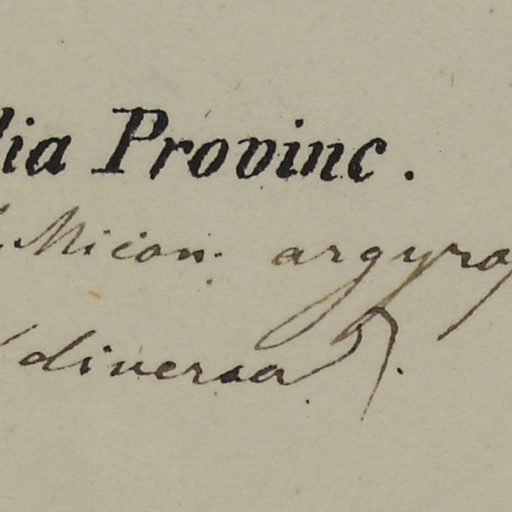 lia Provinc.
Micon: argyro
diversa